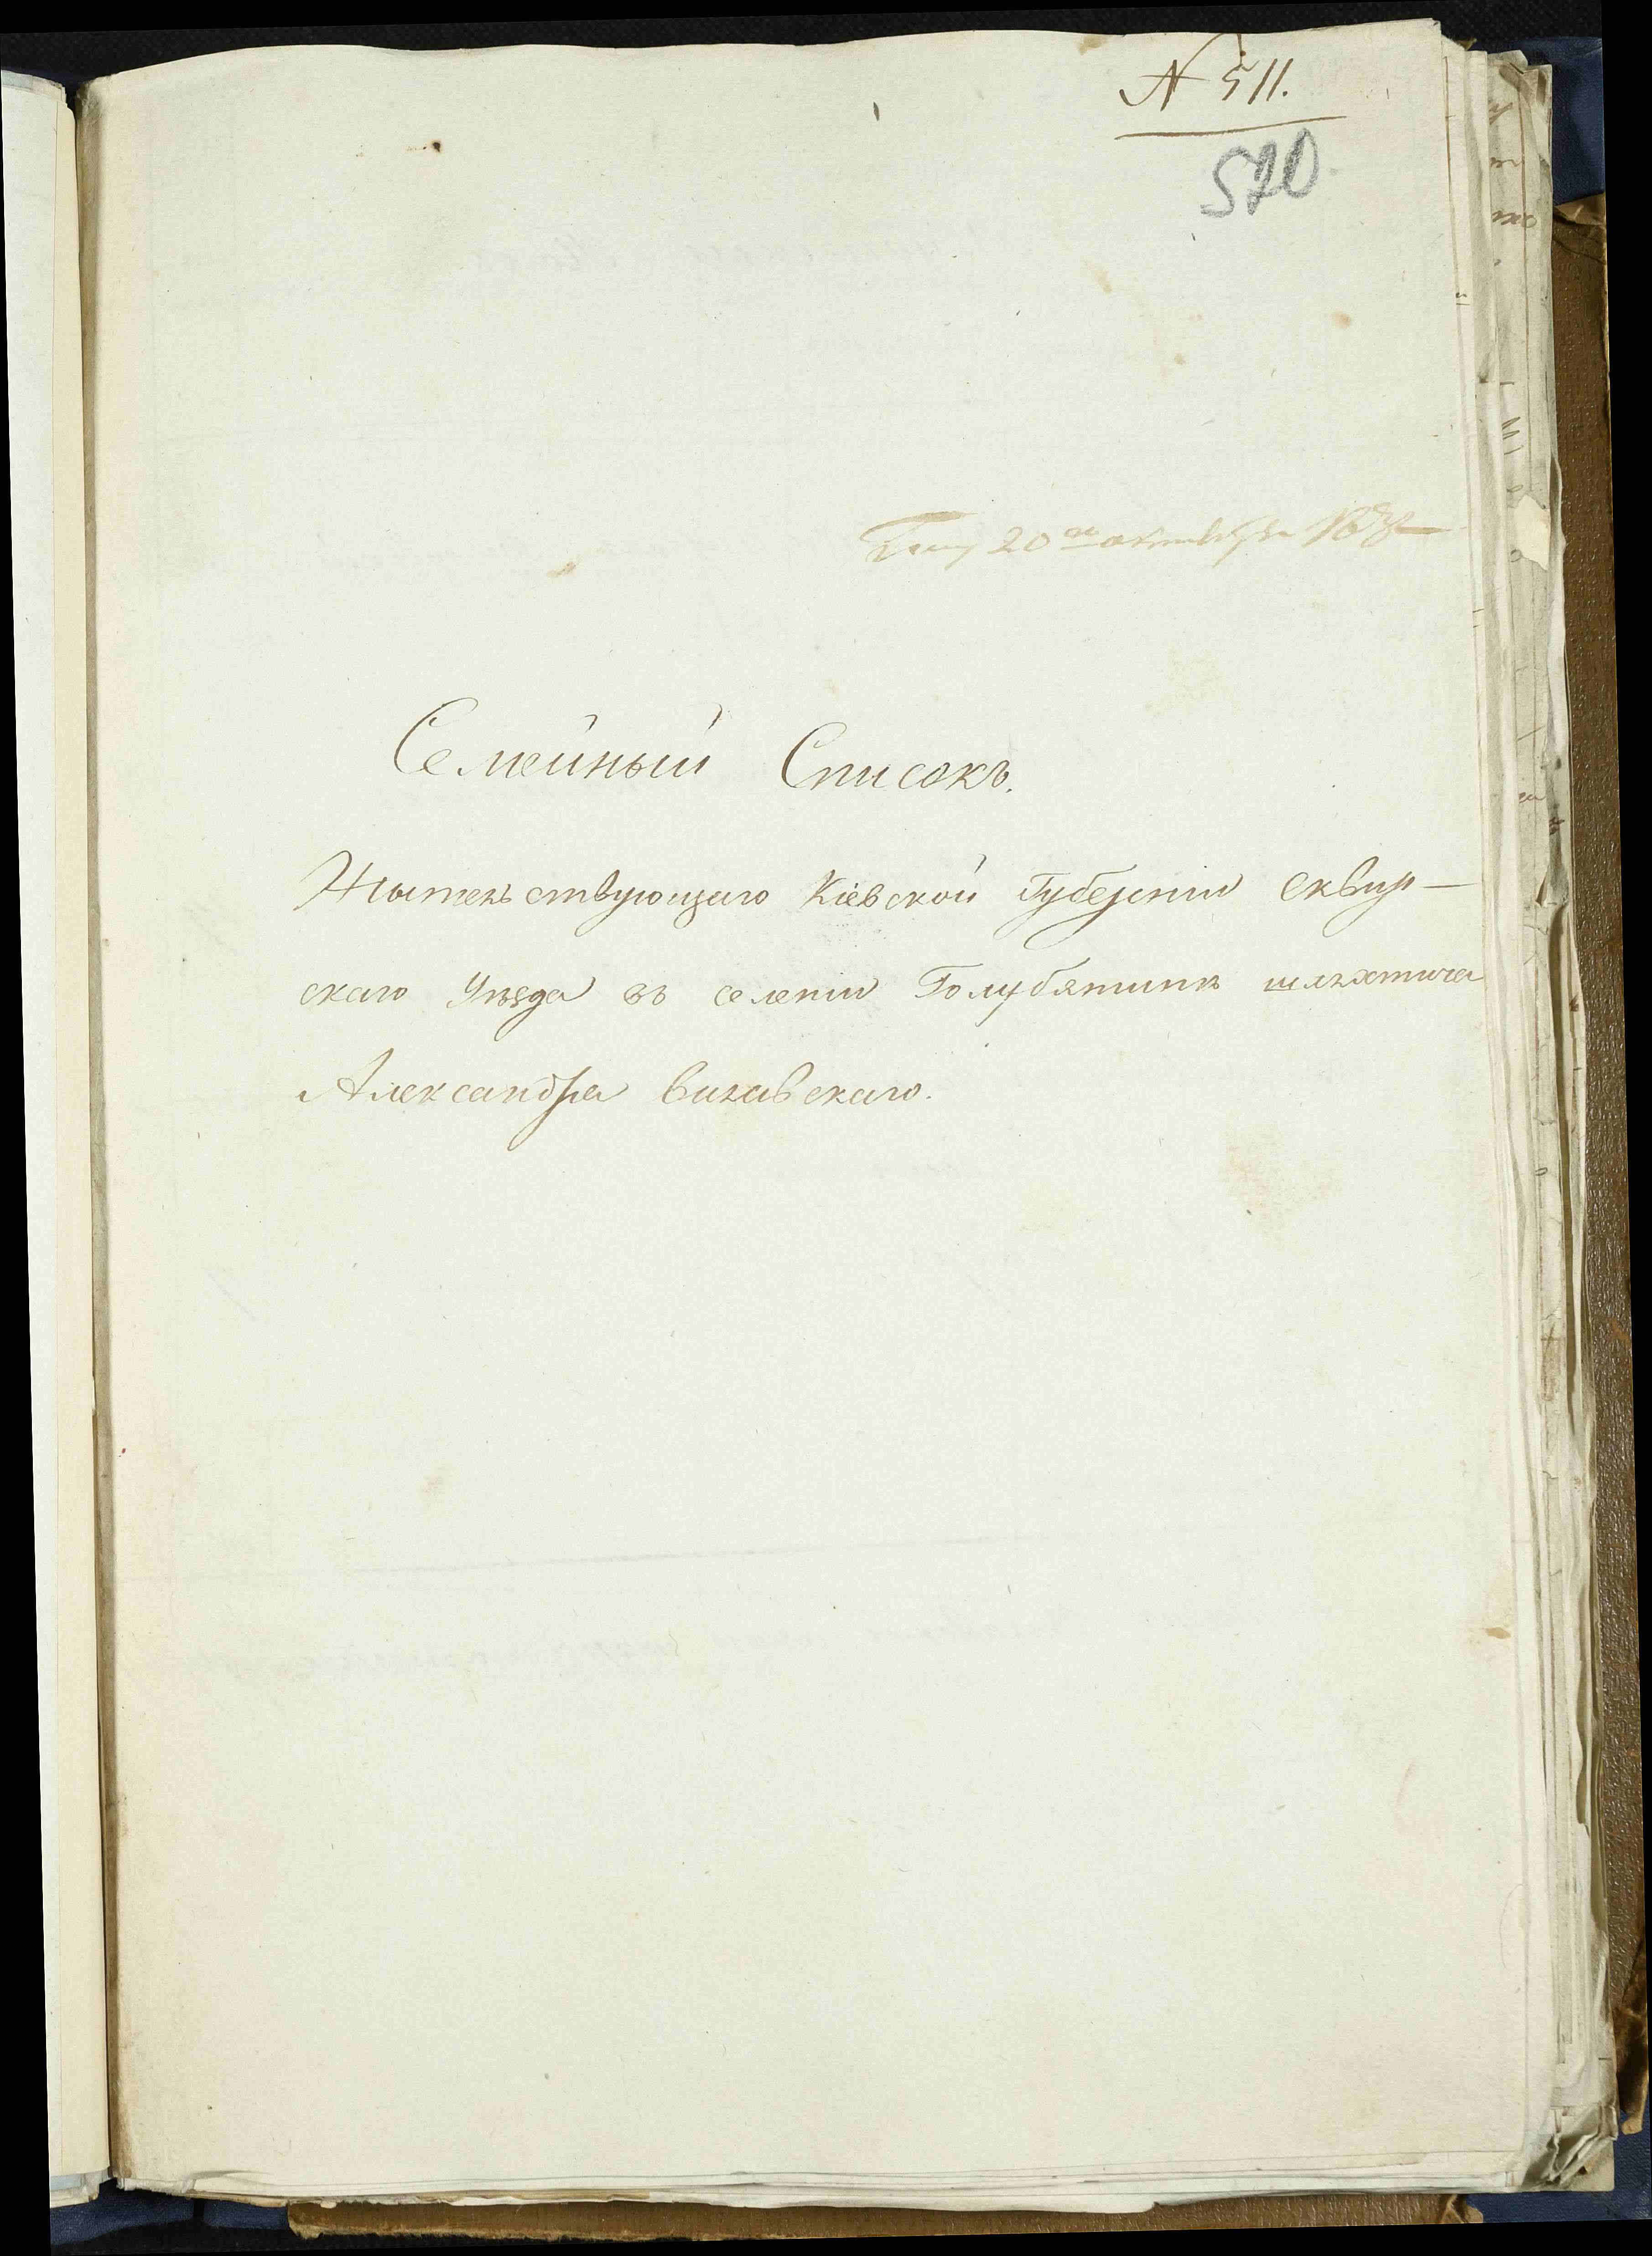 N 511.
570
20го октября
Семейный Списокъ.
Жытельствующаго Кіевской Губерніи Сквир-
скаго Уѣзда въ селеніи Голубятинѣ шляхтича
Александра